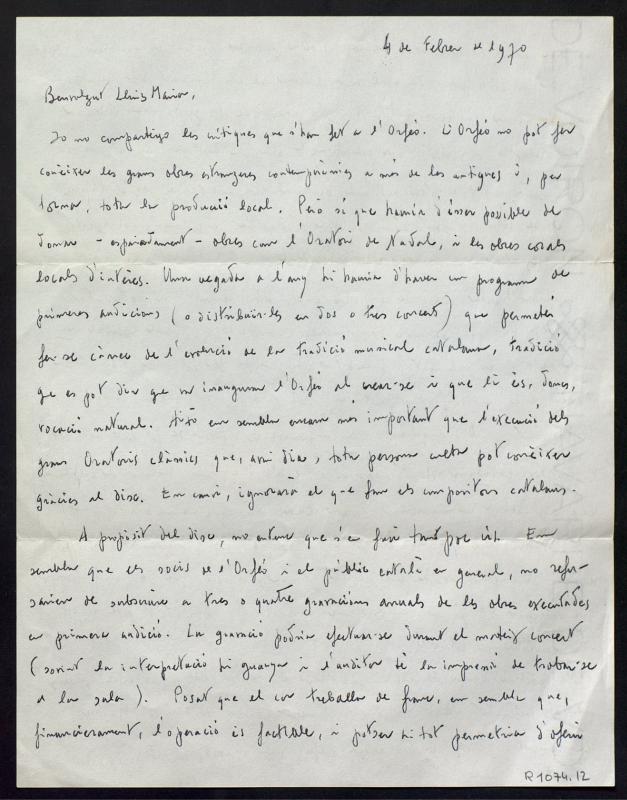 4 de Febrer de 1970
Benvolgut Lluís Maria,
Jo no comparteixo les crítiques que s'han fet a l'Orfeó. L'Orfeó no pot fer
conèixer les grans obres estrangeres contemporànies a més de les antigues i, per
torna, tota la producció local. Però sí que hauria d'ésser possible de
donar - espaiadament - obres com l'Oratori de Nadal, i les obres corals
locals d'interès. Una vegada a l'any hi hauria d'haver un programa de
primeres audicions (o distribuir-les en dos o tres concerts) que permeti
fer-se càrrec de l'evolució de la tradició musical catalana, tradició
que es pot dir que va inaugurar l'Orfeó al crear-se i que li és, doncs,
vocació natural. Això em sembla encara més important que l'execució dels
grans Oratoris clàssics que, avui dia, tota persona culta pot conèixer
gràcies al disc. En canvi, ignorarà el que fan els compositors catalans.
A propòsit del disc, no entenc que s'en faci tant poc ús. Em
sembla que els socis de l'Orfeó i el públic català en general, no refu-
sarien de subscriure a tres o quatre gravacions anuals de les obres executades
en primera audició. La gravació podria efectuar-se durant el mateix concert
(sovint la interpretació hi guanya i l'auditor té la impressió de trobar-se
a la sala). Posat que el cor treballa de franc, em sembla que,
financierament, l'operació és factible, i potser hi tot permetria d'oferir
R 1074.12